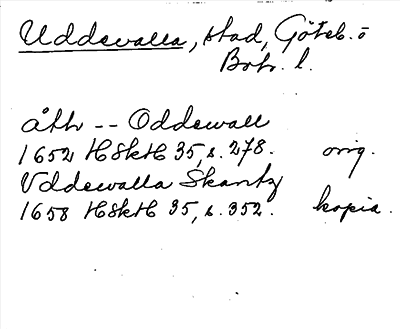 Uddevalla, stad, Göteb. o
Boh. l.
åth -- Oddewall
1652 HSkH 35, s. 278. orig.
Vddewalla Skantz
1658 HSkH 35, s. 352. kopia.